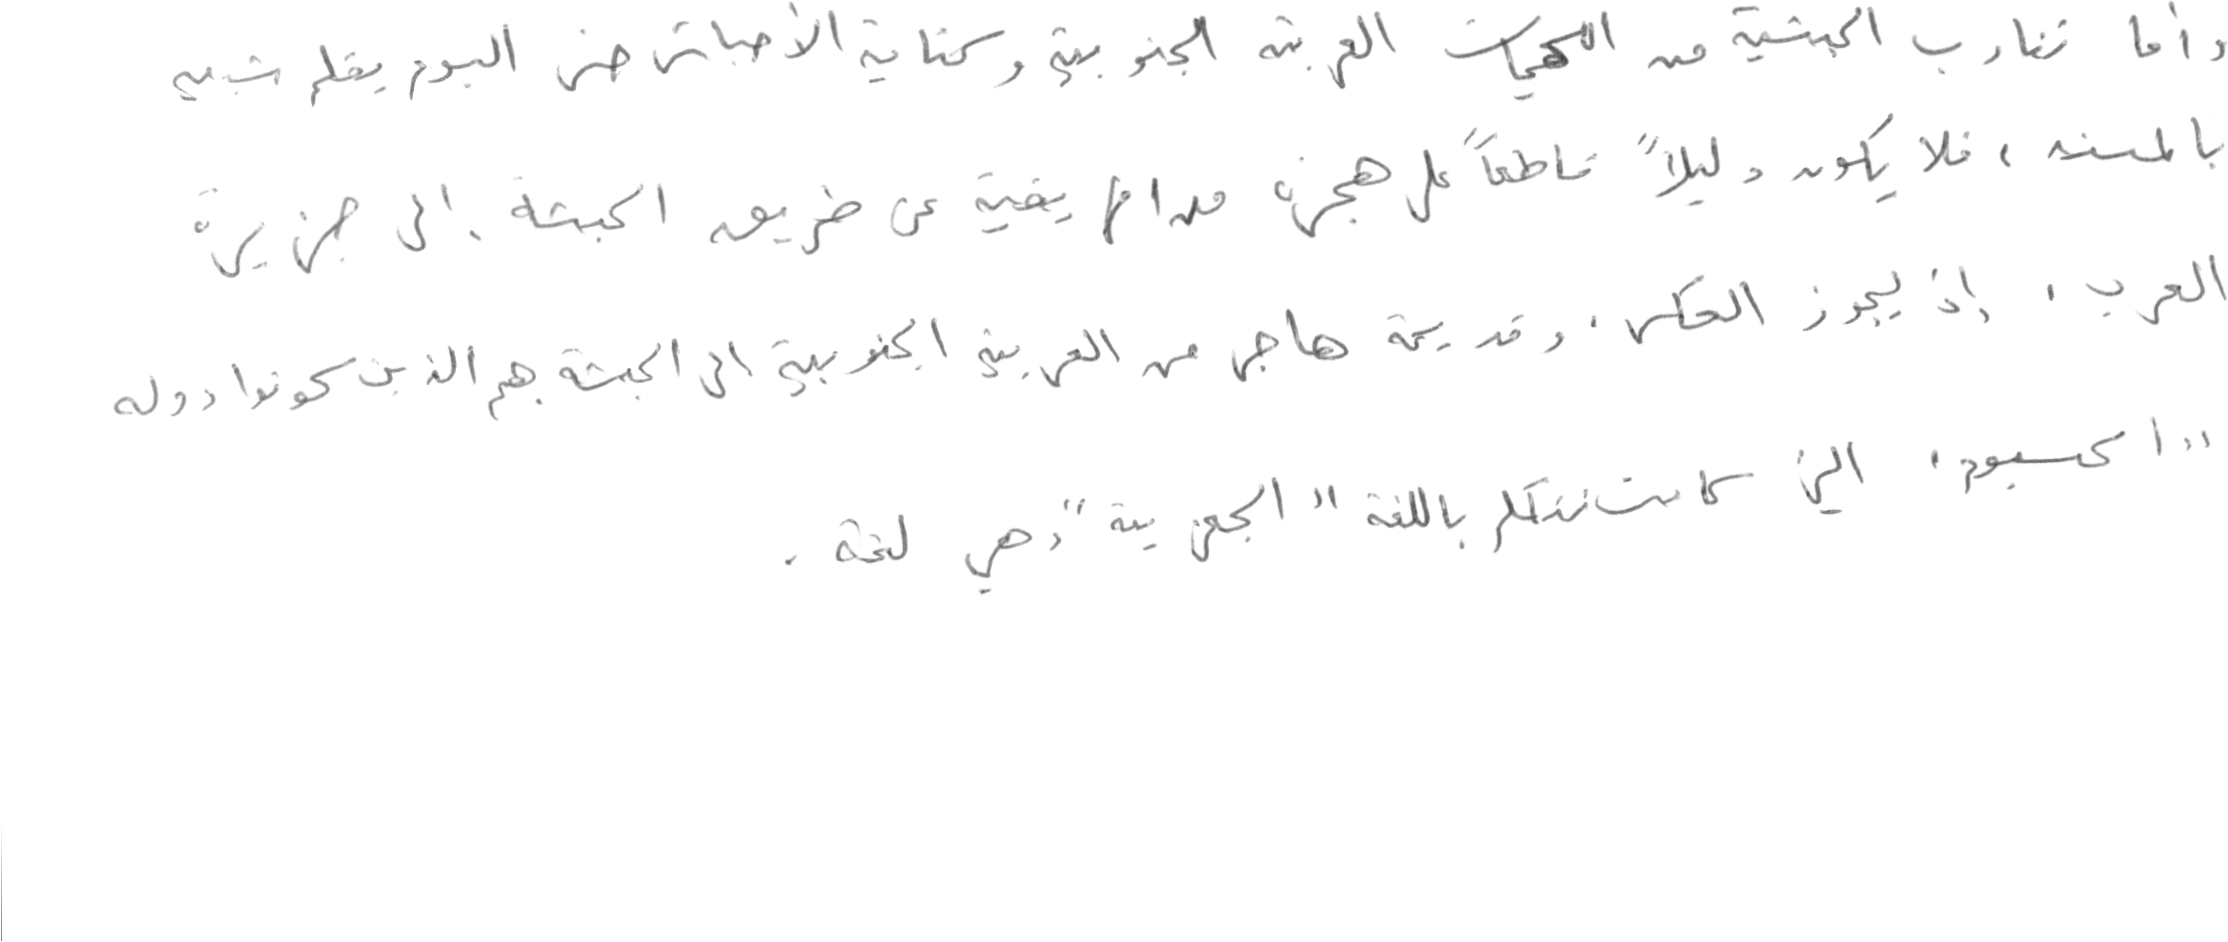 وأما تقارب الحبشية من اللهجات العربية الجنوبية وكتابة الأحباش حتى اليوم بقلم شبيه
بالمسند، فلا يكون دليلاً قاطعاً على هجرة من افريقية عن طريق الحبشة إلى جزيرة
العرب، إذ يجوز العكس، وقديمة هاجر من العربية الجنوبية الى الحبشة هم الذين كونوا دولة
"اكسيوم، التي كانت تتكلم باللغة "الجعزية" وهي لغة.